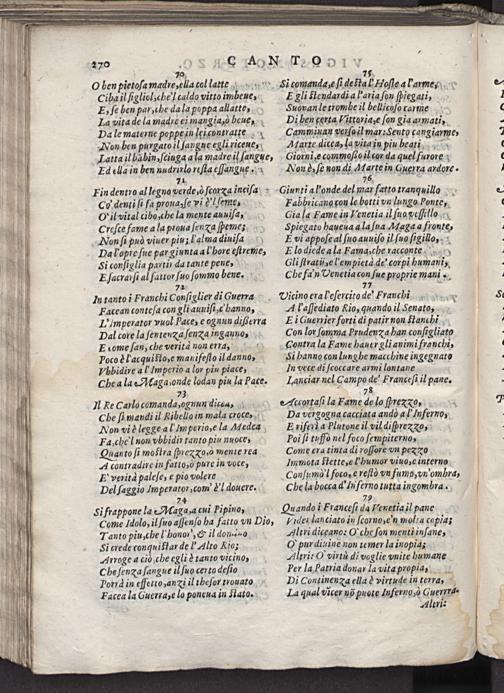 270 CANTO
70
O ben pietosa madre, ella col latte
Ciba il figliol, che'l caldo vitto imbeue,
E, se ben par, che da la poppa allatte,
La vita de la madre ei mangia, ò beue,
Da le materne poppe in lei contratte
Non ben purgato il sangue egli riceue,
Latta il babin, sciuga a la madre il sangue,
Ed ella in ben nudrirlo resta essangue.
71
Fin dentro al legno verde, ò scorza incisa
Co' denti si fa proua, se vi è 'l seme,
O'il vital cibo, che la mente auuisa,
Cresce fame a la proua senza speme;
Non si può viuer più; l'alma diuisa
Da l'opre sue par giunta a l'hore estreme,
Si consiglia partir da tante pene,
E sacrarsi al fattor suo sommo bene.
72
In tanto i Franchi Consiglier di Guerra
Facean contesa con gli auuisi, c'hanno,
L'Imperator vuol Pace, e ognun disserra
Dal core la sentenza senza inganno,
E come san, che verità non erra,
Poco è l'acquisto, e manifesto il danno,
Vbbidire a l'Imperio a lor piu piace,
Che a la Maga, onde lodan piu la Pace.
73
Il Re Carlo comanda, ognun dicea,
Che si mandi il Ribello in mala croce,
Non vi è legge a l'Imperio, e la Medea
Fa, che'l non vbbidir tanto piu nuoce,
Quanto si mostra sprezzo, ò mente rea
A contradire in fatto, ò pure in voce,
E' verità palese, e piò volere
Del saggio Imperator, com' è'l douere.
74
Si frappone la Maga, a cui Pipino,
Come Idolo, il suo assenso ha fatto vn Dio,
Tanto piu, che l'honor', & il domino
Si crede conquistar de l'Alto Rio;
Arroge a ciò, che egli è tanto vicino,
Che senza sangue il suo certo desio
Porrà in effetto, anzi il thesor trouato
Facea la Guerra, e lo poneua in stato.
75
Si comanda, e si desta l'Hoste a l'arme,
E gli stendardi a l'aria son spiegati,
Suonan le trombe il bellicoso carme
Di ben certa Vittoria, e son gia armati,
Camminan verso il mar: Sento congiarme,
Marte dicea, la vita in piu beati
Giorni, e commosso il cor da quel furore
Non è, se non di Marte in Guerra ardore.
76
Giunti a l'onde del mar fatto tranquillo
Fabbricano con le botti vn lungo Ponte,
Gia la Fame in Venetia il suo vessillo
Spiegato haueua a la sua Maga a fronte,
E vi appose al suo auuiso il suo sigillo,
E lo diede a la Fama, che racconte
Gli stratii, e l'empietà de' corpi humani,
Che fa'n Venetia con sue proprie mani.
77
Vicino era l'esercito de' Franchi
A l'assediato Rio, quando il Senato,
E i Guerrier forti di patir non stanchi
Con lor somma Prudenza han consigliato
Contra la Fame hauer gli animi franchi,
Si hanno con lunghe macchine ingegnato
In vece di scoccare armi lontane
Lanciar nel Campo de' Francesi il pane.
78
Accortasi la Fame de lo sprezzo,
Da vergogna cacciata andò a l'Inferno,
E riferì a Plutone il vil disprezzo,
Poi si tuffò nel foco sempiterno,
Come era tinta di rossore vn pezzo
Immota stette, e l'humor viuo, e interno
Consumò'l foco, e restò vn fumo, vn'ombra,
Che la bocca d'Inferno tutta ingombra.
79
Quando i Francesi da Venetia il pane
Vider lanciato in scorno, e'n molta copia;
Altri diceano: O' che son menti insane,
O' pur diuine non temer la inopia;
Altri: O' virtù di voglie vnite humane
Per la Patria donar la vita propia,
Di Continenza ella è virtude in terra,
La qual vicer nõ puote Inferno, ò Guerrra.
Altri: